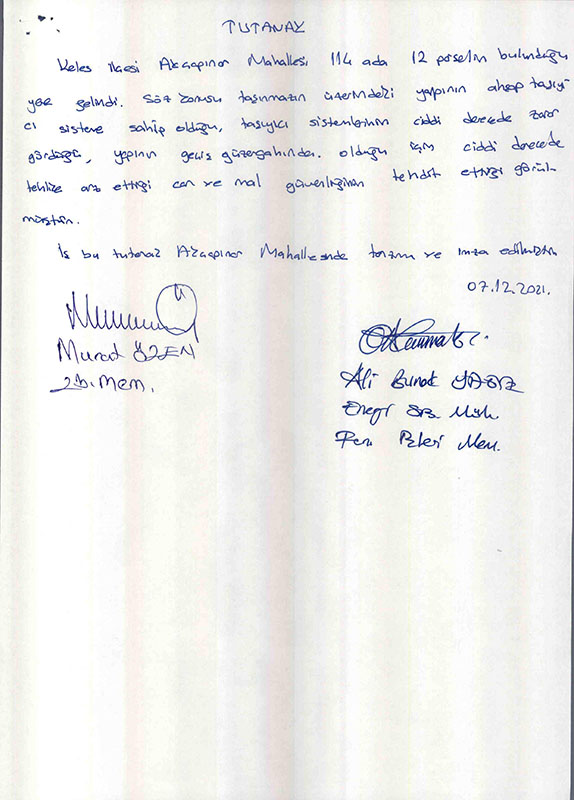 TUTANAK
Keles ilçesi Akçapınar Mahallesi 114 ada 12 parselin bulunduğu
yere gelindi. Söz konusu taşınmazın üzerindeki yapının ahşap taşıyı-
cı sisteme sahip olduğu, taşıyıcı sistemlerinin ciddi derecede zarar
gördüğü, yapının geçiş güzergahında olduğu için ciddi derecede
tehlike arz ettiği can ve mal güvenliğinin tehdit ettiği görül-
müştür.
İş bu tutanak Akçapınar Mahallesinde tanzim ve imza edilmiştir.
07.12.2021.
Murat ÖZEN
Zb. Mem.
Ali Burak
Fen Mem.